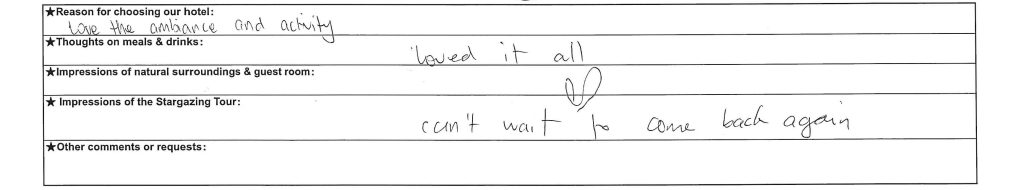 ★Reason for choosing our hotel:
love the ambiance and activity
★Thoughts on meals & drinks:
loved it all
★Impressions of natural surroundings & guest room:
★ Impressions of the Stargazing Tour:
can't wait to come back again
★Other comments or requests: